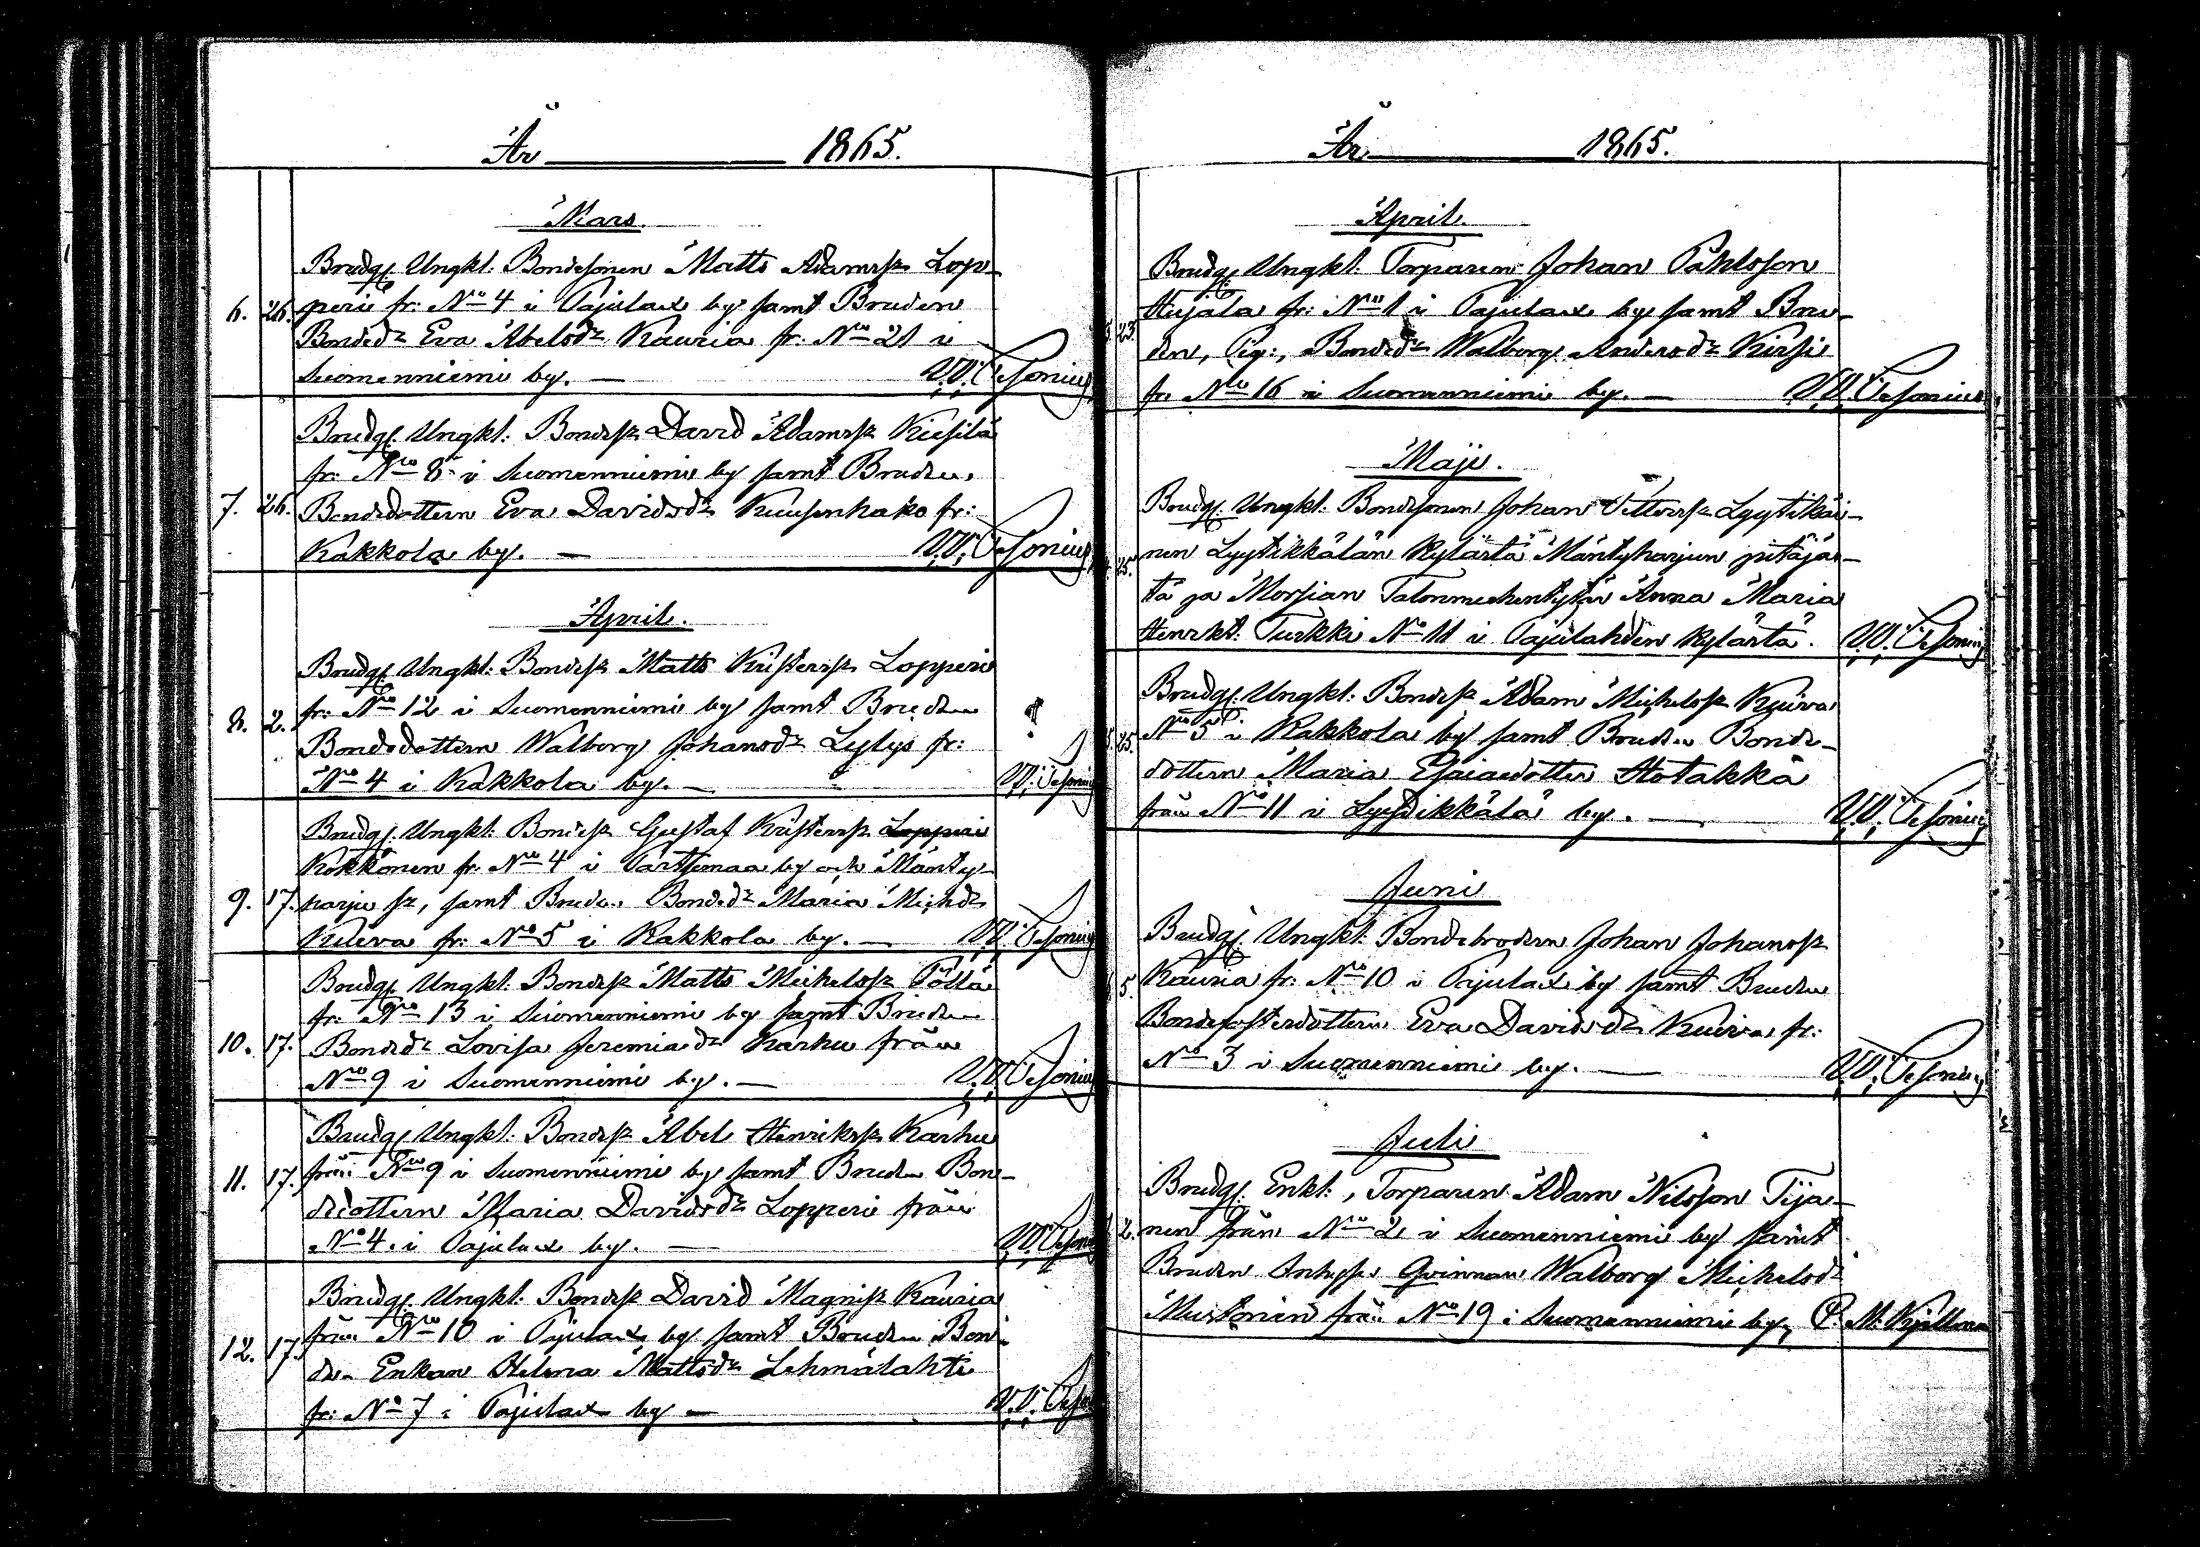 År 1865.
Mars.
Brudg. Ungkl. Bondesonen Matts Adamsson Lop-
6. 26. peri fr. No 4 i Pajulax by samt Bruden
Bondedr Eva Abelsdr Kauria fr. No 21 i
Suomenniemi by. —
Brudg. Ungkl. Bondes. David Adamss. Kiesilä
fr. No 8 i Suomenniemi by samt Bruden,
7. 26. Bondedottern Eva Davidsdr Kuusenhako fr:
Kakkola by. —
April.
Brudg. Ungkl. Bondes. Matts Kristerss. Lopperi
8. 2. fr. No 12 i Suomenniemi by samt Bruden
Bondedottern Walborg Johansdr Lylys fr:
No 4 i Kakkola by. —
Brudg. Ungkl. Bondes. Gustaf Kristerss. Lopperi
Kokkonen fr. No 4 i Parttimaa by och Mänty-
9. 17. harju sn, samt Bruden Bondedr Maria Michdr
Kuiva fr. No 5 i Kakkola by. —
Brudg. Ungkl. Bondes. Matts Michelss. Pöllä
fr. No 13 i Suomenniemi by samt Bruden
10. 17. Bondedr Lovisa Jeremiaedr Karhu från
No 9 i Suomenniemi by. —
Brudg. Ungkl. Bondes. Abel Henrikss. Karhu
11. 17. från No 9 i Suomenniemi by samt Bruden Bon-
dedottern Maria Davidsdr Lopperi från
No 4 i Pajulax by. —
Brudg. Ungkl. Bondes. David Magniss. Kauria
12. 17. från No 10 i Pajulax by samt Bruden Bon-
de Enkan Helena Mattsdr Lehmälahti
fr. No 7 i Pajulax by —
År 1865.
April.
Brudg. Ungkl. Torparen Johan Påhlsson
23. Hujala fr. No 1 i Pajulax by samt Bru-
den, Pig:, Bondedr Walborg Andersdr Kirsi
fr. No 16 i Suomenniemi by. —
Maji.
Brudg. Ungkl. Bondesonen Johan Lyytikäi-
25. nen Lyytikkälän kylästä Mäntyharjun pitäjäs-
tä ja Morsian Talonmiehentytär Anna Maria
Henrikt. Turkki No 11 i Pajulahden kylästä.
Brudg. Ungkl. Bondes. Adam Michelss. Kuiva
25. No 5 i Kakkola by samt Bruden Bonde-
dottern Maria Esaiaedotter Hotakka
från No 11 i Lyydikkälä by. —
Juni
Brudg. Ungkl. Bondebrodern Johan Johanss.
5. Kauria fr. No 10 i Pajulax by samt Bruden
Bondefosterdottern Eva Davidsdr Kuiva fr:
No 3 i Suomenniemi by. —
Juli
Brudg. Enkl., Torparen Adam Nilsson Tija-
2. nen från No 2 i Suomenniemi by samt
Bruden Qvinnan Walborg Michelsdr
Mustonen från No 19 i Suomenniemi by,